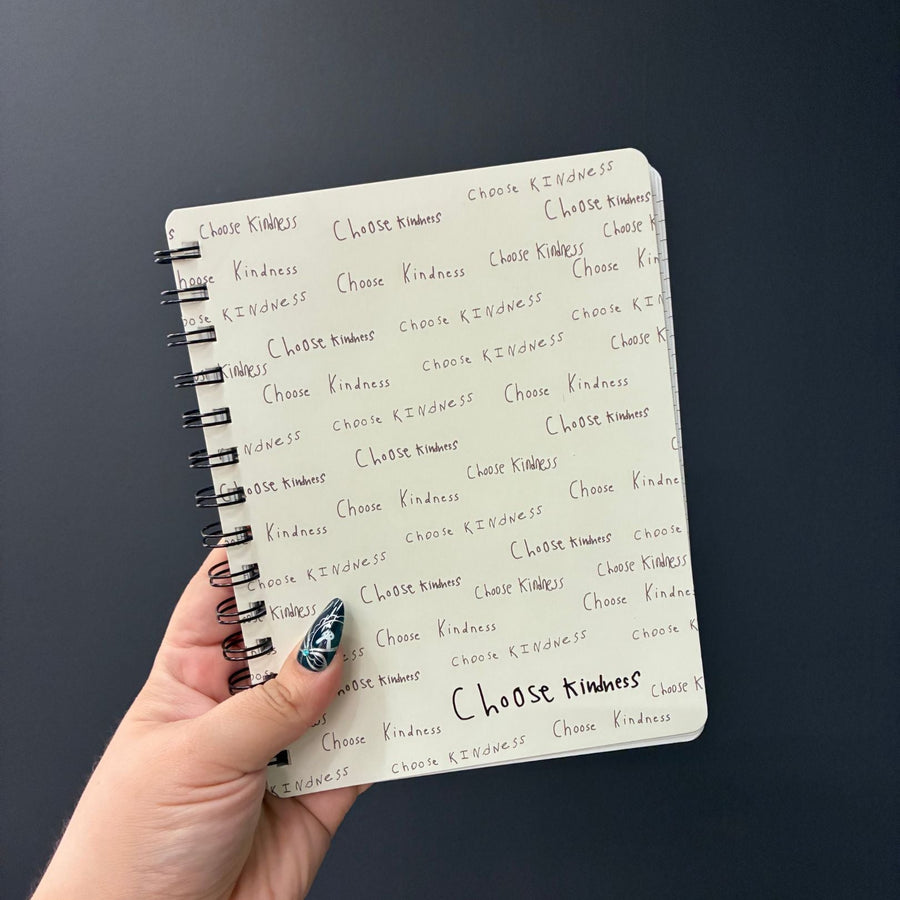 Choose KINDNESS
s Choose Kindness Choose Kindness Choose Kindness
Choose Kindness Choose
hoose Kindness Choose Kindness Choose Kin
oose KINDNESS Choose KINDNESS Choose KIN
Choose Kindness Choose KINDNESS Choose K
Kindness Choose Kindness Choose Kindness
NDNESS Choose KINDNESS Choose Kindness
Choose Kindness Choose Kindness C
Choose Kindness Choose Kindness Choose Kindne
Kindness Choose KINDNESS Choose Kindness Choose
Choose KINDNESS Choose Kindness Choose Kindness Choose Kindness
Kindness Choose Kindness Choose Kindne
ss Choose KINDNESS Choose K
hoose Kindness Choose Kindness Choose K
Choose Kindness Choose Kindness
KINDNESS Choose KINDNESS